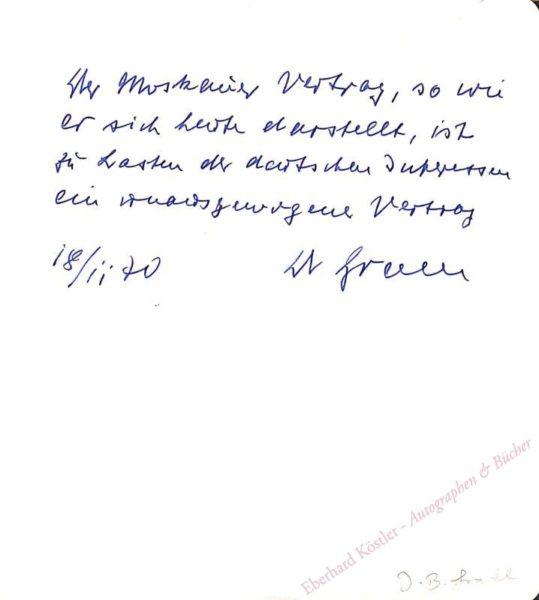 Der Moskauer Vertrag, so wie
er sich heute darstellt, ist
zu Lasten der deutschen Interessen
ein unausgewogener Vertrag
18/11 70
J. B. Gradl
Eberhard Köstler - Autographen & Bücher